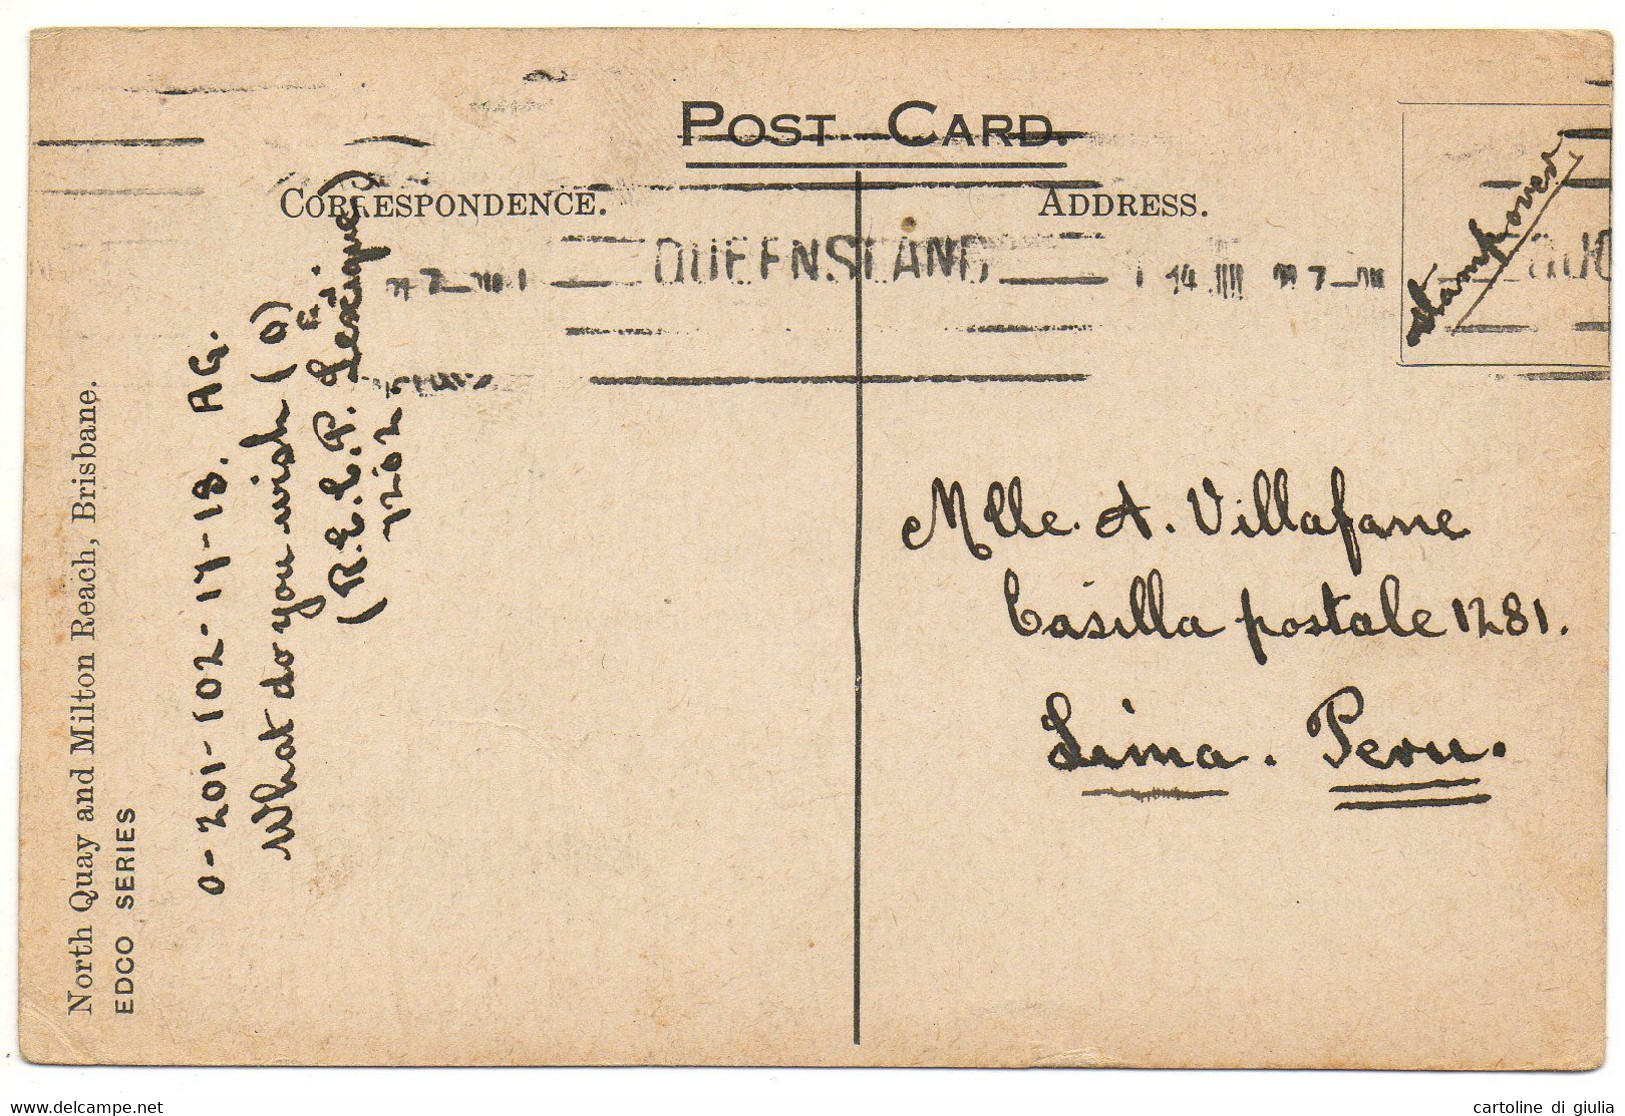 POST CARD.
CORRESPONDENCE.
ADDRESS.
QUEENSLAND
Stamp over
North Quay and Milton Reach, Brisbane.
EDCO SERIES
0-201-102-17-18. AG.
What do you wish (0)
(R.E.C.P.
1202
Mlle. A. Villafane
Casilla postale 1281.
Lima. Peru.
www.delcampe.net
cartoline di giulia